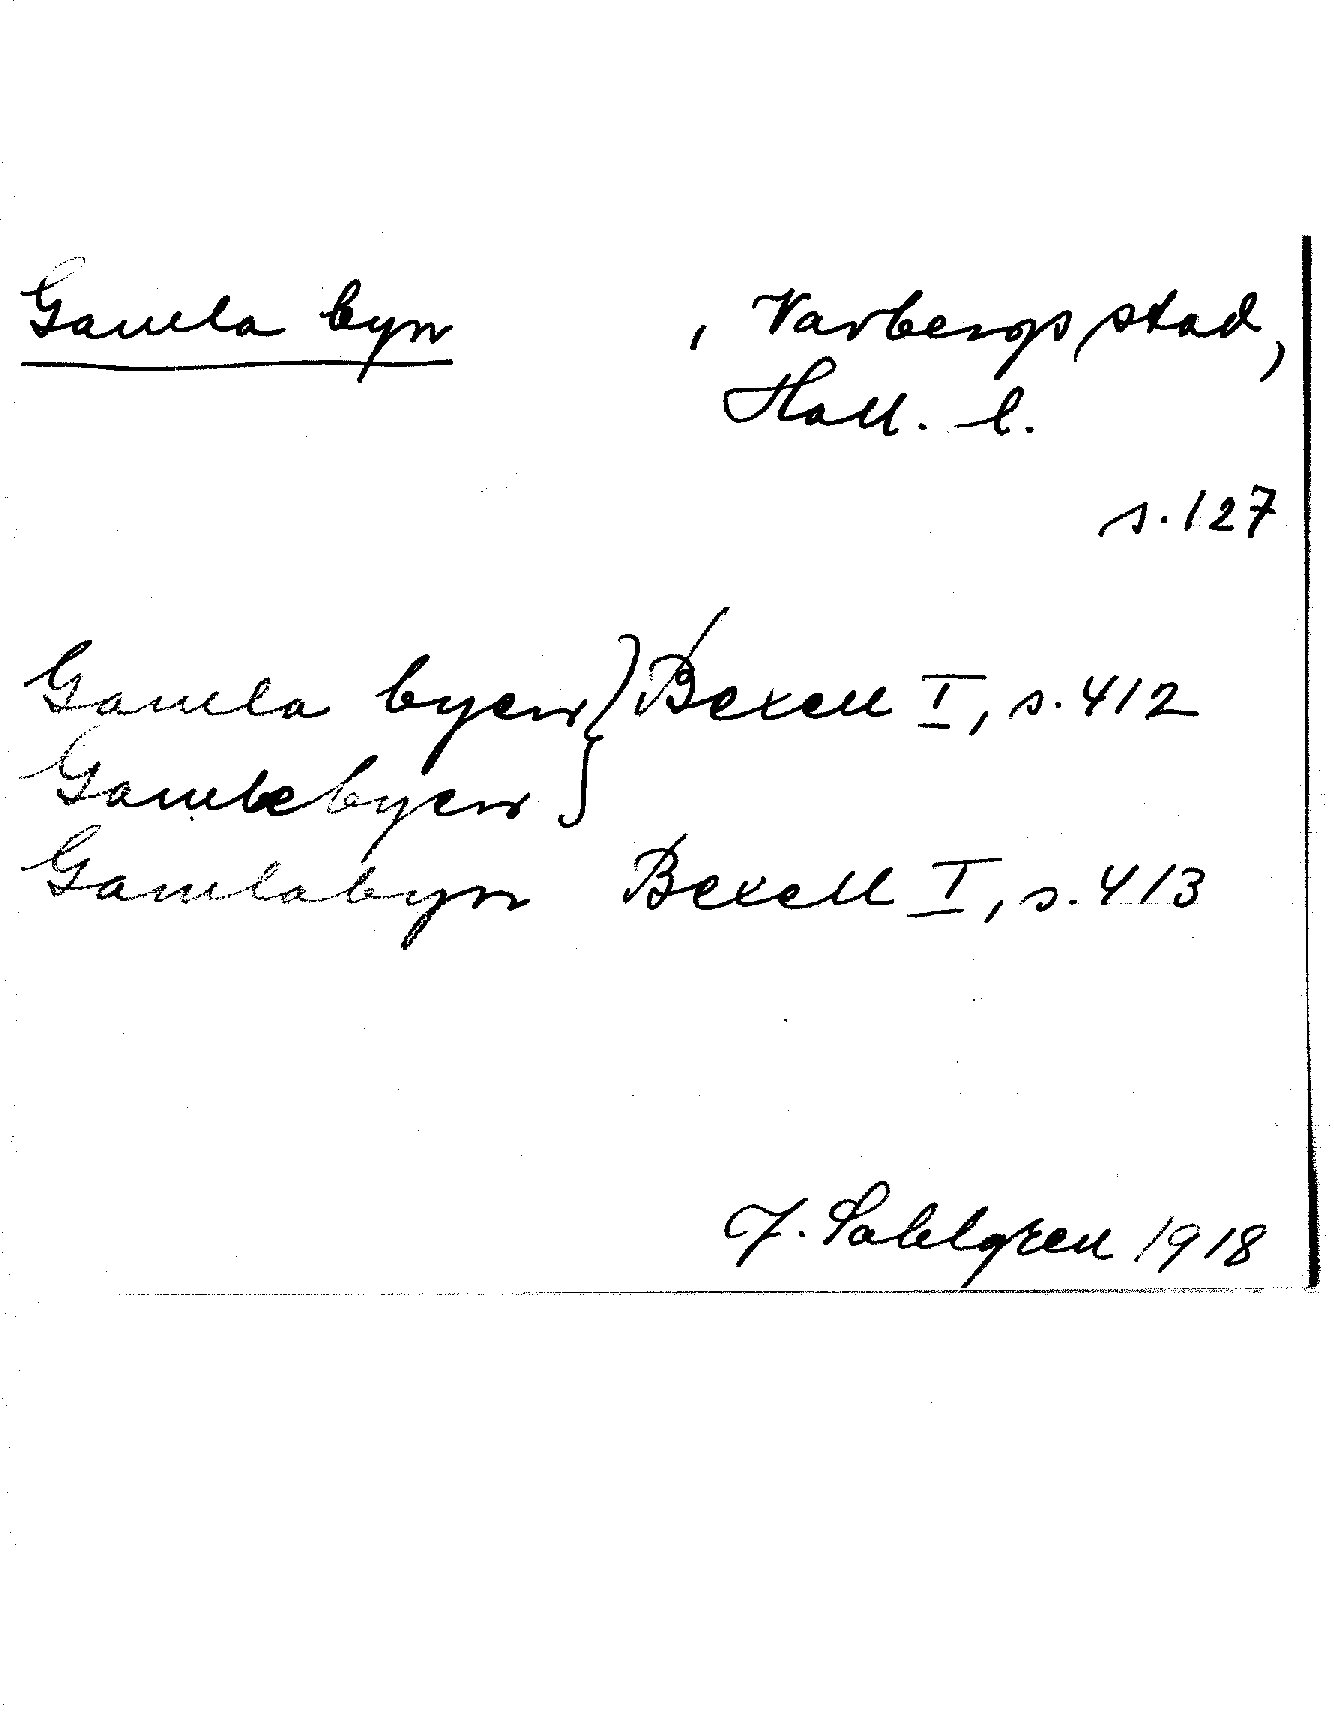 Gamla byn , Varbergs stad,
Hall. l.
s. 127
Gamla byen } Bexell I, s. 412
Gamlebyen
Gamlabyn Bexell I, s. 413
J. Sahlgren 1918